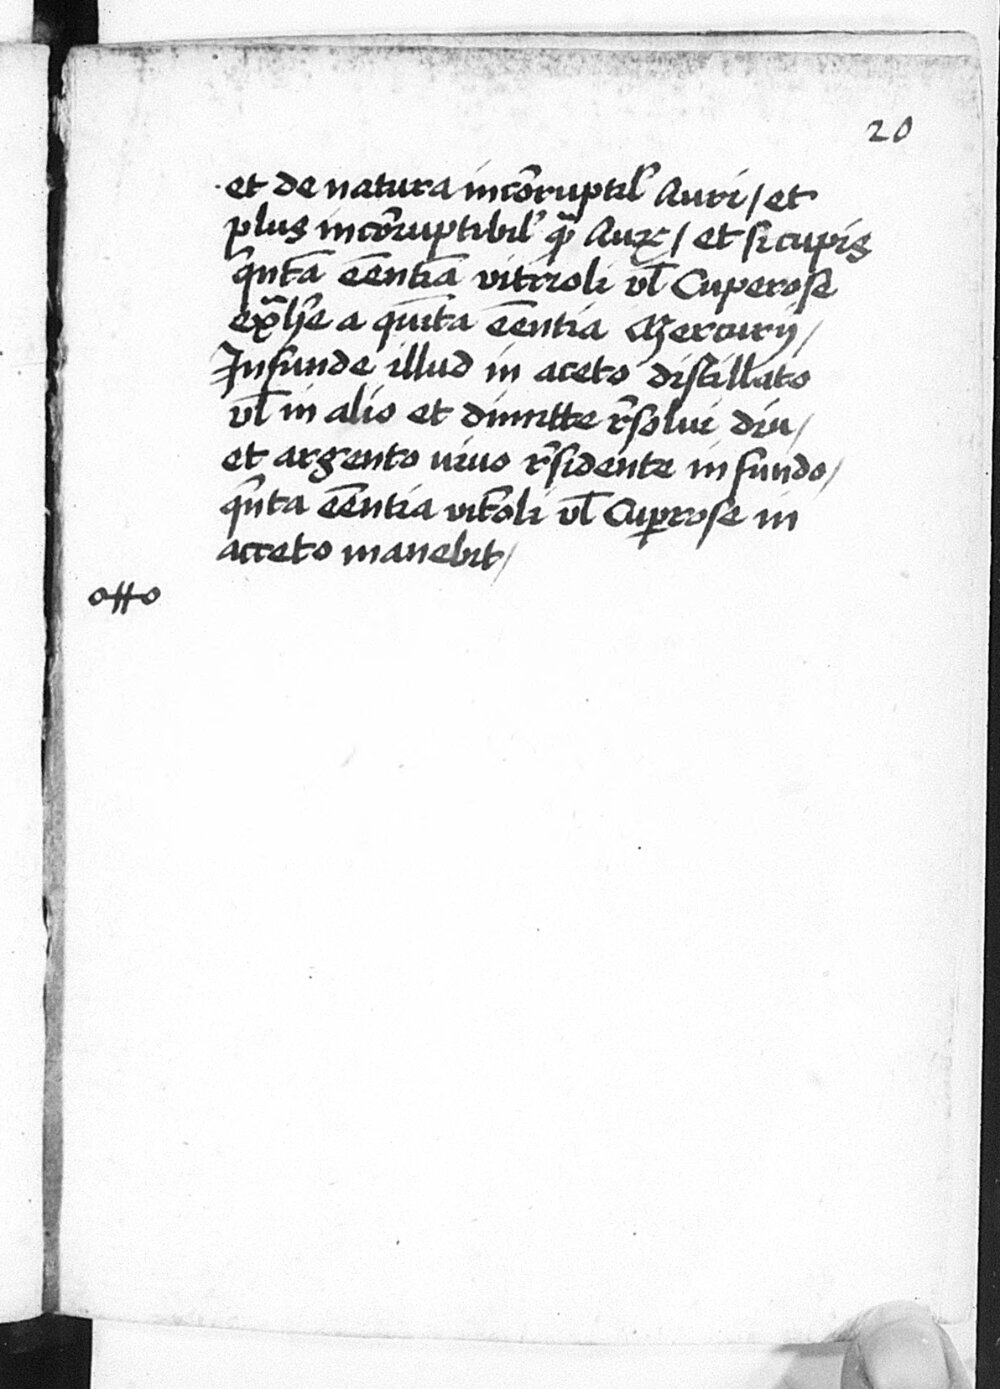 20
et de natura incor̃ruptil' Auri / et
plus incor̃ruptibil' q̃ Auꝝ / et si cupis
q̃nta᷉ ee᷉ntia᷉ vitrioli vl̃ Cuperose
a qui᷉ta ee᷉ntia Mercurij /
Infunde illud in aceto distillato
vl̃ in alio et dimitte r̃solui diu /
et argento uiuo r̃sidente in fundo /
q̃nta ee᷉ntia vit᷉oli vl̃ Cuꝑrose in
acceto manebit /